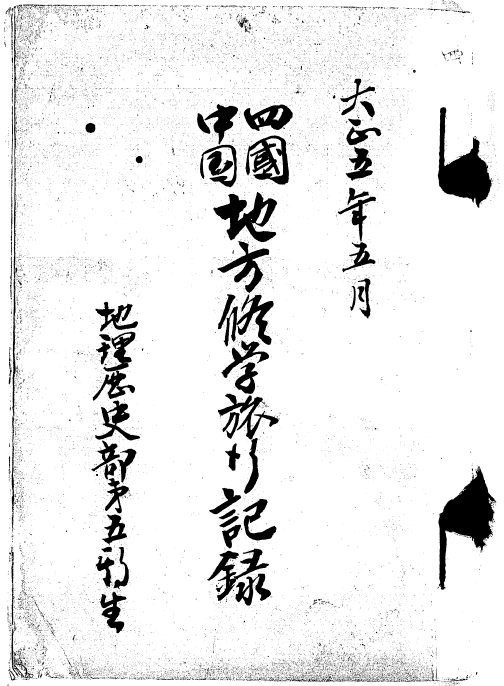 四
大正五年五月
四國
中国
地方修学旅行記録
地理歴史部第五期生